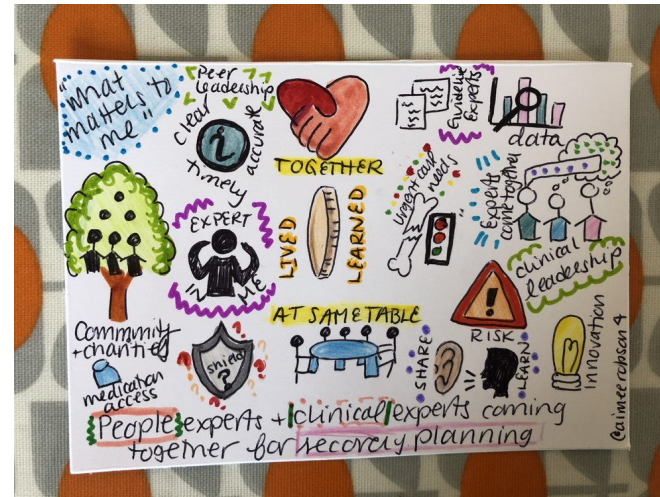 "What
matters to
me"
Peer
leadership
clear
accurate
timely
i
TOGETHER
Guideline
Experts
data
EXPERT
IN ME
LIVED
LEARNED
Urgent care
needs
Experts
come together
clinical
leadership
AT SAME TABLE
Community
+ charities
medication
access
shield
?
!
RISK
SHARE
LEARN
Innovation
@aimeerobson4
People experts + clinical experts coming
together for recovery planning